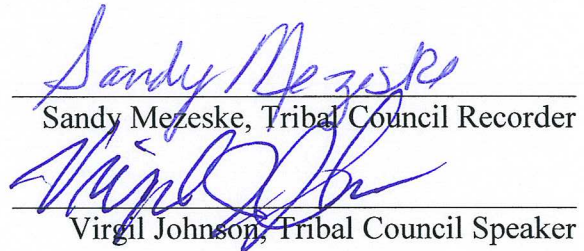 Sandy Mezeske
Sandy Mezeske, Tribal Council Recorder
Virgil Johnson
Virgil Johnson, Tribal Council Speaker